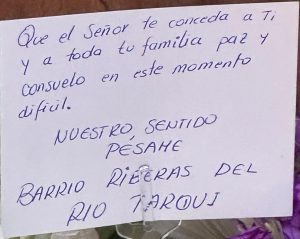 Que el Señor te conceda a Ti
y a toda tu familia paz y
consuelo en este momento
difícil.
NUESTRO, SENTIDO
PÉSAME
BARRIO RIBERAS DEL
RIO TARQUI